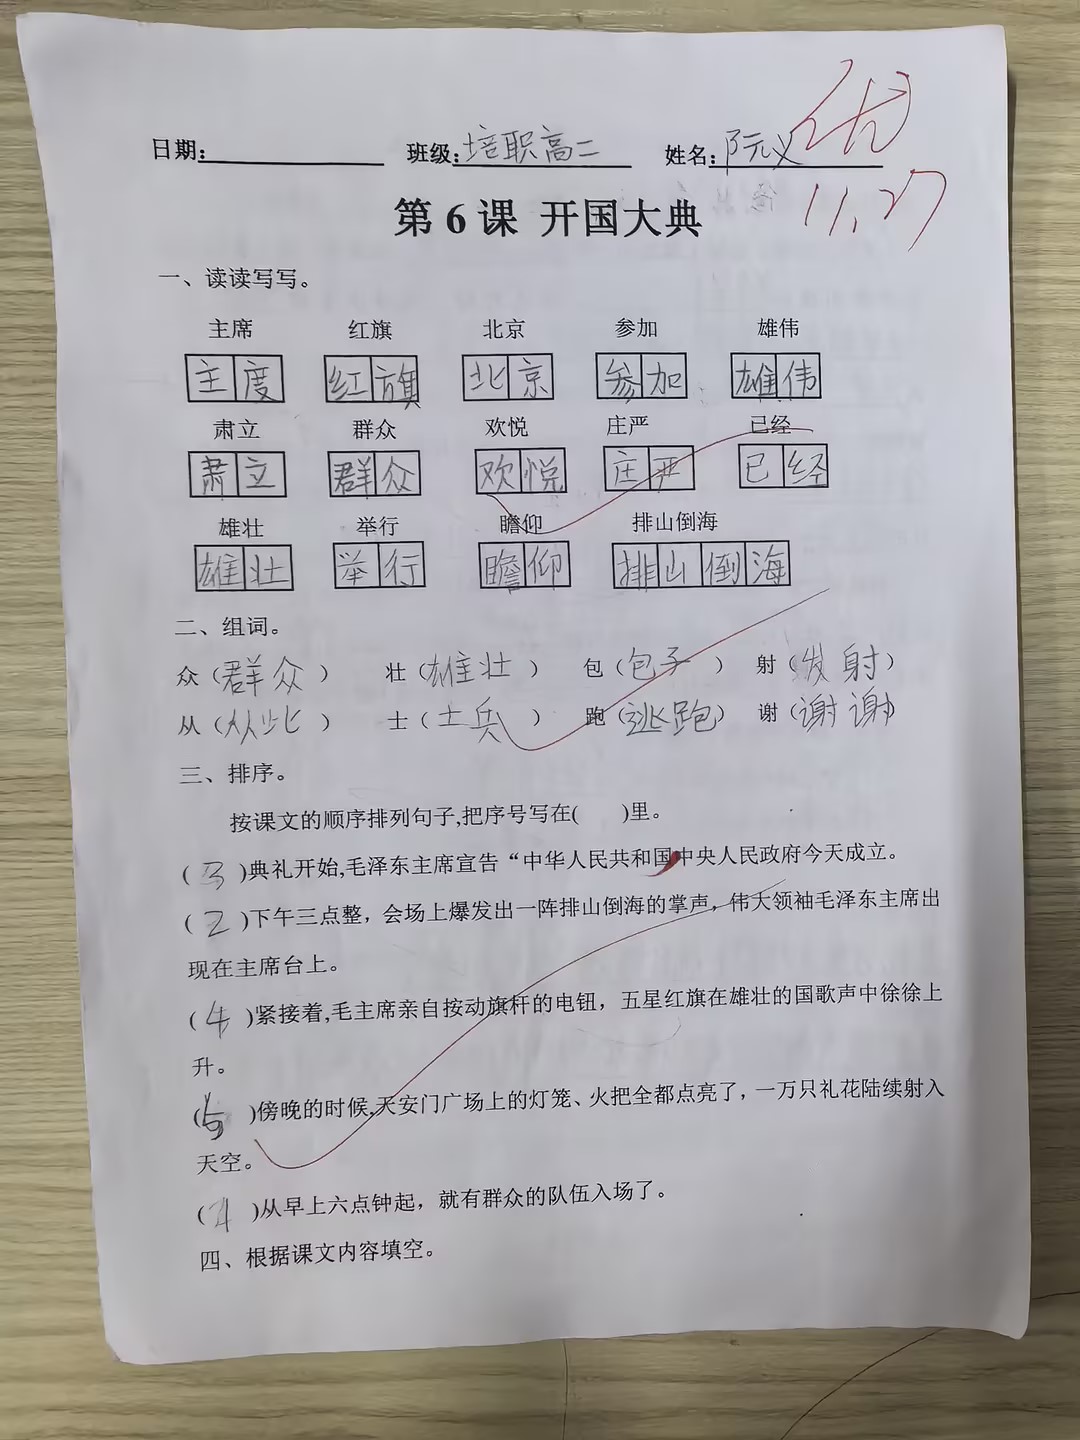 日期： 班级：培职高二 姓名：阮义
优
11.27
第 6 课 开国大典
一、读读写写。
主席 红旗 北京 参加 雄伟
主度 红旗 北京 参加 雄伟
肃立 群众 欢悦 庄严 已经
肃立 群众 欢悦 庄严 已经
雄壮 举行 瞻仰 排山倒海
雄壮 举行 瞻仰 排山倒海
二、组词。
众（群众） 壮（雄壮） 包（包子） 射（发射）
从（从此） 士（士兵） 跑（逃跑） 谢（谢谢）
三、排序。
按课文的顺序排列句子,把序号写在( )里。
( 3 )典礼开始,毛泽东主席宣告“中华人民共和国中央人民政府今天成立。
( 2 )下午三点整，会场上爆发出一阵排山倒海的掌声，伟大领袖毛泽东主席出
现在主席台上。
( 4 )紧接着,毛主席亲自按动旗杆的电钮，五星红旗在雄壮的国歌声中徐徐上
升。
( 5 )傍晚的时候,天安门广场上的灯笼、火把全都点亮了，一万只礼花陆续射入
天空。
( )从早上六点钟起，就有群众的队伍入场了。
四、根据课文内容填空。